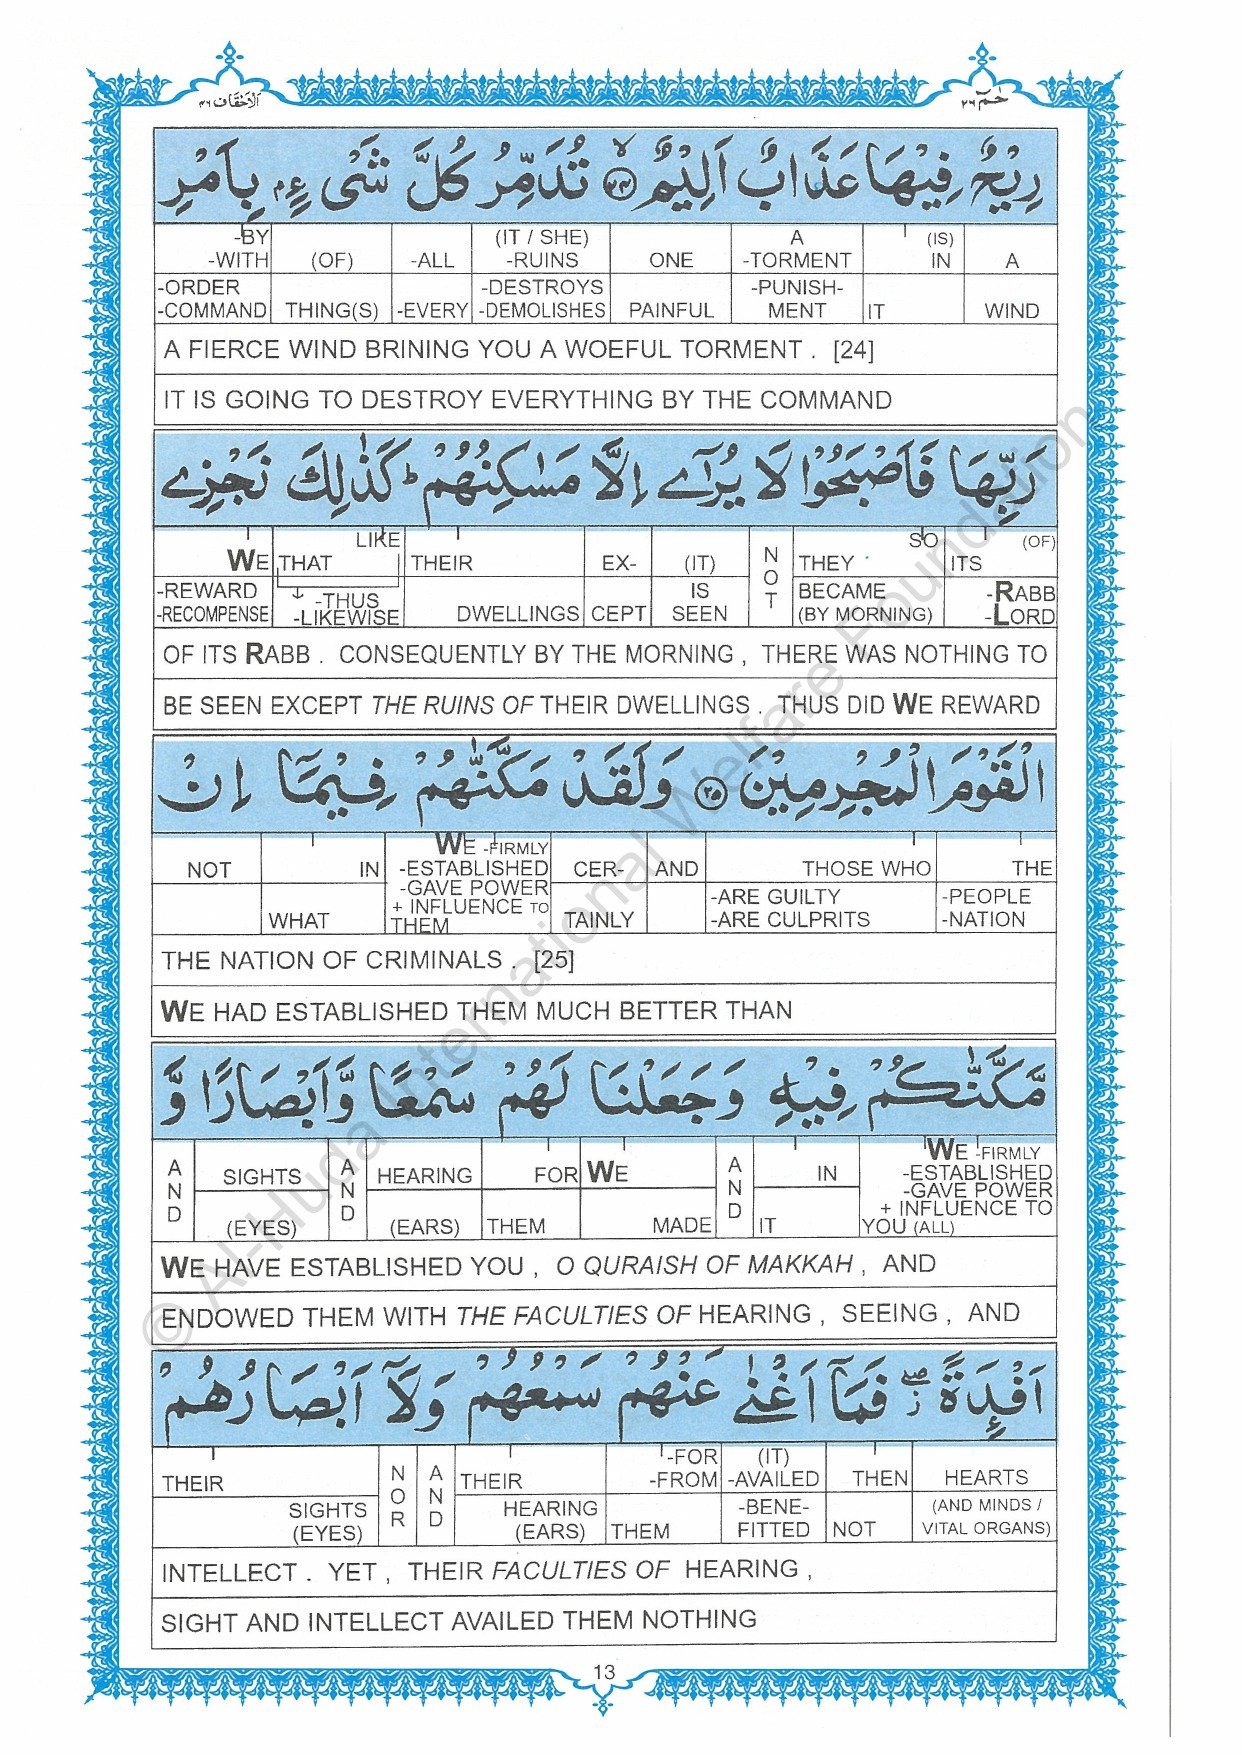 اَلْاَحْقَاف ٤٦
حٰمٓ ٢٦
رِيْحٌ فِيْهَا عَذَابٌ اَلِيْمٌ ﴿٢٤﴾ تُدَمِّرُ كُلَّ شَىْءٍ بِاَمْرِ
-BY -WITH -ORDER -COMMAND
(OF) THING(S)
-ALL -EVERY
(IT / SHE) -RUINS -DESTROYS -DEMOLISHES
ONE PAINFUL
A -TORMENT -PUNISH- MENT
(IS) IN IT
A WIND
A FIERCE WIND BRINING YOU A WOEFUL TORMENT . [24]
IT IS GOING TO DESTROY EVERYTHING BY THE COMMAND
رَبِّهَا فَاَصْبَحُوْا لَا يُرٰٓى اِلَّا مَسٰكِنُهُمْ ؕ كَذٰلِكَ نَجْزِى
WE -REWARD -RECOMPENSE
LIKE THAT -THUS -LIKEWISE
THEIR DWELLINGS
EX- CEPT
(IT) IS SEEN
NOT
SO THEY BECAME (BY MORNING)
(OF) ITS -RABB -LORD
OF ITS RABB . CONSEQUENTLY BY THE MORNING , THERE WAS NOTHING TO
BE SEEN EXCEPT THE RUINS OF THEIR DWELLINGS . THUS DID WE REWARD
الْقَوْمَ الْمُجْرِمِيْنَ ﴿٢٥﴾ وَلَقَدْ مَكَّنّٰهُمْ فِيْمَاۤ اِنْ
NOT
IN WHAT
WE -FIRMLY -ESTABLISHED -GAVE POWER + INFLUENCE TO THEM
CER- TAINLY
AND
THOSE WHO -ARE GUILTY -ARE CULPRITS
THE -PEOPLE -NATION
THE NATION OF CRIMINALS . [25]
WE HAD ESTABLISHED THEM MUCH BETTER THAN
مَّكَّنّٰكُمْ فِيْهِ وَجَعَلْنَا لَهُمْ سَمْعًا وَّاَبْصَارًا وَّ
AND
SIGHTS (EYES)
AND
HEARING (EARS)
FOR THEM
WE MADE
AND
IN IT
WE -FIRMLY -ESTABLISHED -GAVE POWER + INFLUENCE TO YOU (ALL)
WE HAVE ESTABLISHED YOU , O QURAISH OF MAKKAH , AND
ENDOWED THEM WITH THE FACULTIES OF HEARING , SEEING , AND
اَفْـِٕدَةً ۖ فَمَاۤ اَغْنٰى عَنْهُمْ سَمْعُهُمْ وَلَاۤ اَبْصَارُهُمْ
THEIR SIGHTS (EYES)
NOR
AND
THEIR HEARING (EARS)
-FOR -FROM THEM
(IT) -AVAILED -BENE- FITTED
THEN NOT
HEARTS (AND MINDS / VITAL ORGANS)
INTELLECT . YET , THEIR FACULTIES OF HEARING ,
SIGHT AND INTELLECT AVAILED THEM NOTHING
13
© Al-Huda International Welfare Foundation